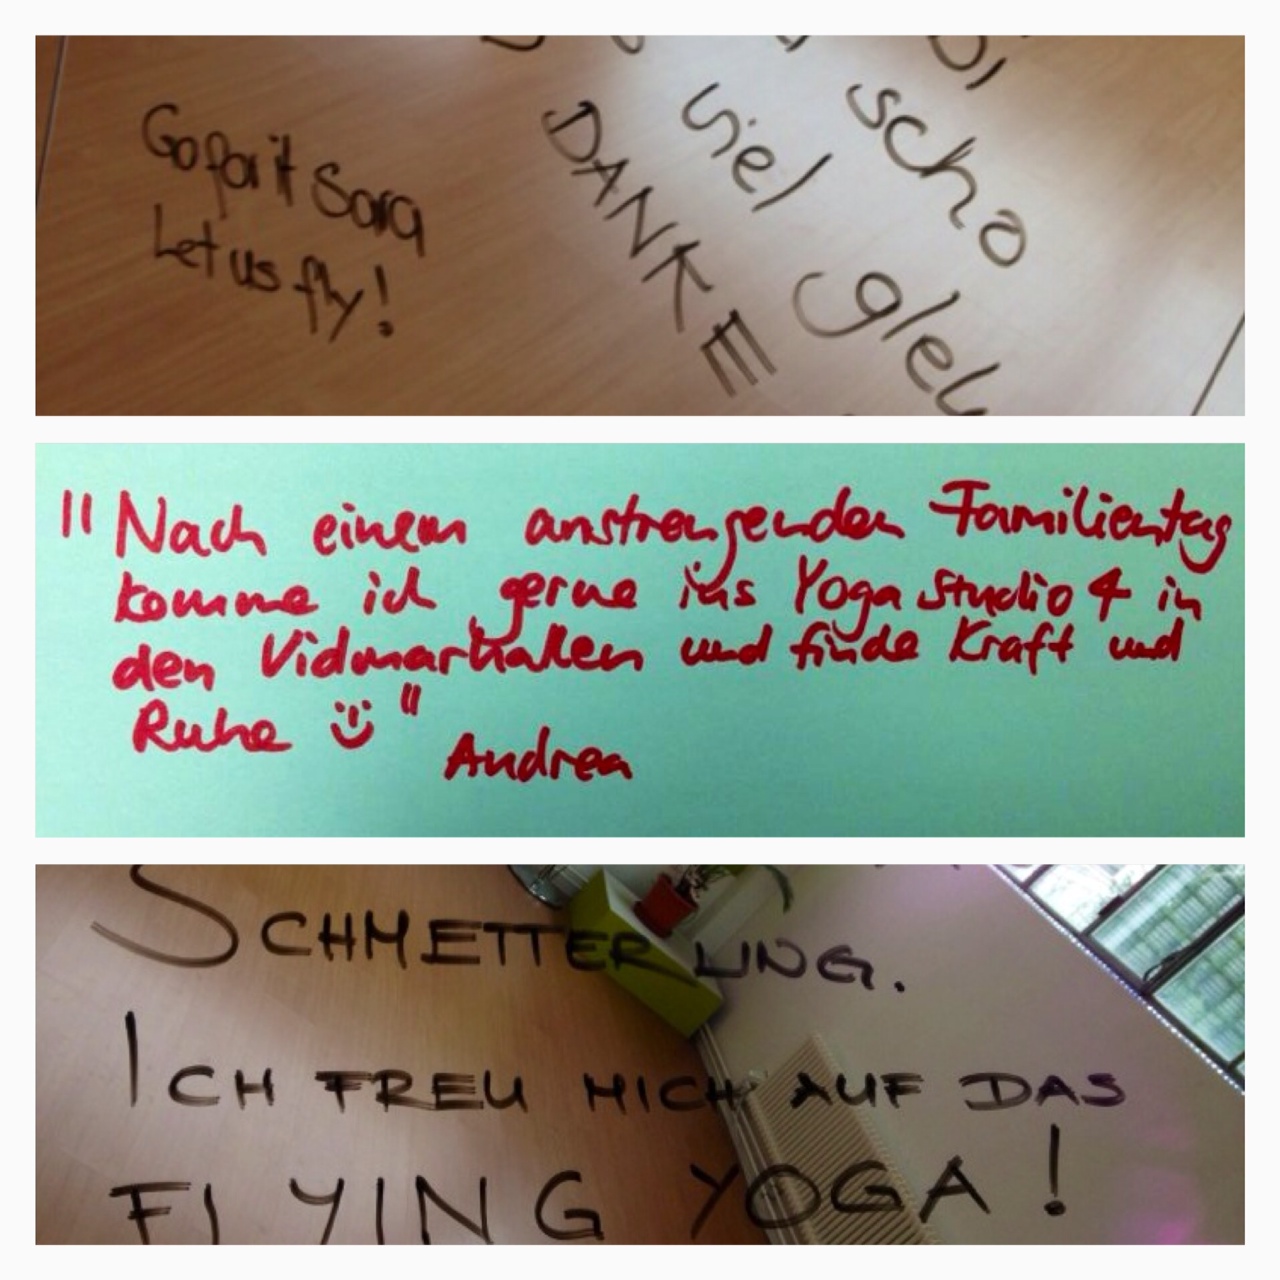 Go for it Sara
Let us fly!
scho
viel glel
DANKE
"Nach einem anstrengenden Familientag
komme ich gerne ins Yoga Studio 4 in
den Vidmarhallen und finde Kraft und
Ruhe ☺"
Andrea
SCHMETTERLING.
ICH FREU MICH AUF DAS
FLYING YOGA!